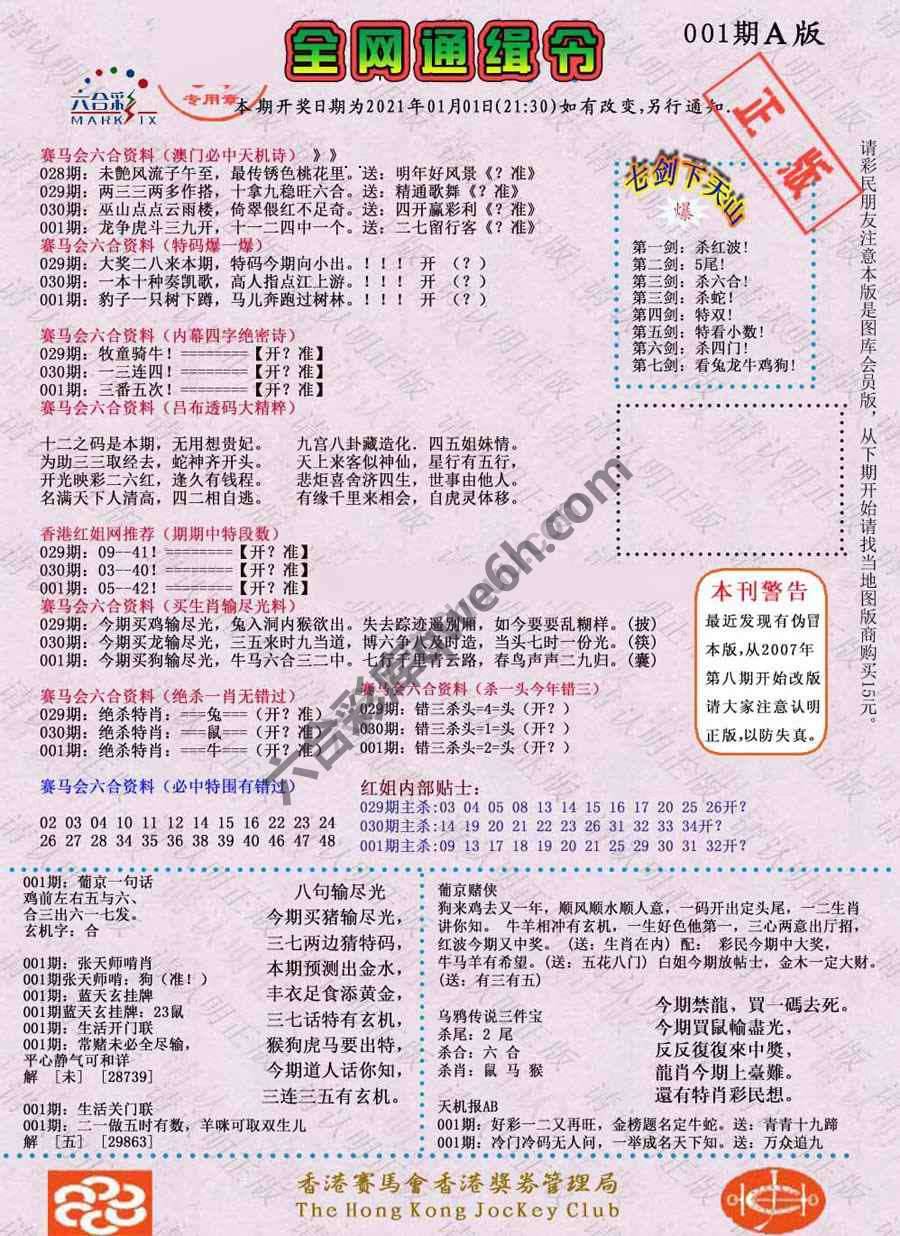 全网通缉令
001期A版
六合彩
MARK SIX
专用章
本期开奖日期为2021年01月01日(21:30)如有改变,另行通知.
正版
赛马会六合资料（澳门必中天机诗）》》
028期: 未艶风流子午至，最传锈色桃花里。送: 明年好风景《？准》
029期: 两三三两多作搭，十拿九稳旺六合。送: 精通歌舞《？准》
030期: 巫山点点云雨楼，倚翠偎红不足奇。送: 四开赢彩利《？准》
001期: 龙争虎斗三九开，十一二四中一个。送: 二七留行客《？准》
赛马会六合资料（特码爆一爆）
029期: 大奖二八来本期，特码今期向小出。！！！ 开 （？）
030期: 一本十种奏凯歌，高人指点江上游。！！！ 开 （？）
001期: 豹子一只树下蹲，马儿奔跑过树林。！！！ 开 （？）
赛马会六合资料（内幕四字绝密诗）
029期: 牧童骑牛！========【开？准】
030期: 一三连四！========【开？准】
001期: 三番五次！========【开？准】
赛马会六合资料（吕布透码大精粹）
十二之码是本期，无用想贵妃。 九宫八卦藏造化．四五姐妹情。
为助三三取经去，蛇神齐开头。 天上来客似神仙，星行有五行，
开光映彩二六红，逢久有钱程。 悲炬喜舍济四生，世事由他人。
名满天下人清高，四二相自逃。 有缘千里来相会，自虎灵体移。
香港红姐网推荐（期期中特段数）
029期: 09--41！========【开？准】
030期: 03--40！========【开？准】
001期: 05--42！========【开？准】
赛马会六合资料（买生肖输尽光料）
029期: 今期买鸡输尽光，兔入洞内猴欲出。失去踪迹遍别厢，如今要要乱糊样。(披)
030期: 今期买龙输尽光，三五来时九当道，博六争八及时造，当头七时一份光。(筷)
001期: 今期买狗输尽光，牛马六合三二中。七行千里青云路，春鸟声声二九归。(囊)
赛马会六合资料（绝杀一肖无错过）
029期: 绝杀特肖: ===兔===（开？准）
030期: 绝杀特肖: ===鼠===（开？准）
001期: 绝杀特肖: ===牛===（开？准）
赛马会六合资料（杀一头今年错三）
029期: 错三杀头=4=头（开？）
030期: 错三杀头=1=头（开？）
001期: 错三杀头=2=头（开？）
赛马会六合资料（必中特围有错过）
02 03 04 10 11 12 14 15 16 22 23 24
26 27 28 34 35 36 38 39 40 46 47 48
红姐内部贴士:
029期主杀:03 04 05 08 13 14 15 16 17 20 25 26开？
030期主杀:14 19 20 21 22 23 26 31 32 33 34开？
001期主杀:09 13 17 18 19 20 21 25 29 30 31 32开？
七剑下天山
爆
第一剑: 杀红波！
第二剑: 5尾！
第三剑: 杀六合！
第三剑: 杀蛇！
第四剑: 特双！
第五剑: 特看小数！
第六剑: 杀四门！
第七剑: 看兔龙牛鸡狗！
请彩民朋友注意本版是图库会员版，从下期开始请找当地图版商购买15元。
本刊警告
最近发现有伪冒
本版,从2007年
第八期开始改版
请大家注意认明
正版,以防失真。
六合彩库qwe6h.com
001期: 葡京一句话
鸡前左右五与六、
合三出六一七发。
玄机字: 合
001期: 张天师啃肖
001期张天师啃: 狗（准！）
001期: 蓝天玄挂牌
001期蓝天玄挂牌: 23鼠
001期: 生活开门联
001期: 常赌未必全尽输，
平心静气可和详
解 [未] [28739]
001期: 生活关门联
001期: 二一做五时有数，羊咪可取双生儿
解 [五] [29863]
八句输尽光
今期买猪输尽光，
三七两边猜特码，
本期预测出金水，
丰衣足食添黄金，
三七话特有玄机，
猴狗虎马要出特，
今期道人话你知，
三连三五有玄机。
葡京赌侠
狗来鸡去又一年，顺风顺水顺人意，一码开出定头尾，一二生肖
讲你知。 牛羊相冲有玄机，一生好色他第一，三心两意出厅招，
红波今期又中奖。 (送: 生肖在内) 配: 彩民今期中大奖，
牛马羊有希望。(送: 五花八门) 白姐今期放帖士，金木一定大财。
(送: 有三有五)
乌鸦传说三件宝
杀尾: 2 尾
杀合: 六 合
杀肖: 鼠 马 猴
今期禁龍，買一碼去死。
今期買鼠輸盡光，
反反復復來中獎，
龍肖今期上臺難。
還有特肖彩民想。
天机报AB
001期: 好彩一二又再旺，金榜题名定牛蛇。送: 青青十九蹄
001期: 冷门冷码无人问，一举成名天下知。送: 万众追九
香港賽馬會香港獎券管理局
The Hong Kong JocKey Club